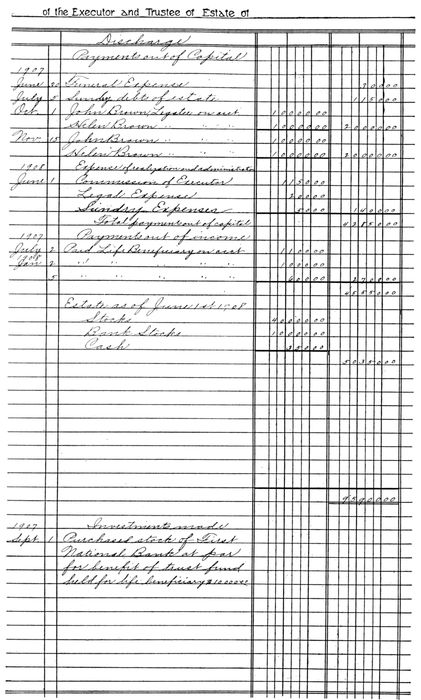 of the Executor and Trustee of Estate of
Discharge
Payments out of Capital
1907
June 30 Funeral Expense 30000
July 5 Sundry debts of estate 115000
Oct. 1 John Brown, Legatee on acct 1000000
Helen Brown " " " 1000000 2000000
Nov. 15 John Brown " " " 1000000
Helen Brown " " " 1000000 2000000
1908 Expense of realization and administration
June 1 Commission of Executor 115000
Legal Expense 20000
Sundry Expenses 5000 140000
Total payments out of capital 4285000
1907 Payments out of income
July 2 Paid Life Beneficiary on acct 110000
1908
Jan 2 " " " " " 100000
5 " " " " " 60000 270000
4555000
Estate as of June 1st 1908
Stocks 4000000
Bank Stocks 1000000
Cash 35000
5035000
9590000
1907 Investments made
Sept. 1 Purchased stock of First
National Bank at par
for benefit of trust fund
held for life beneficiary $10000.00